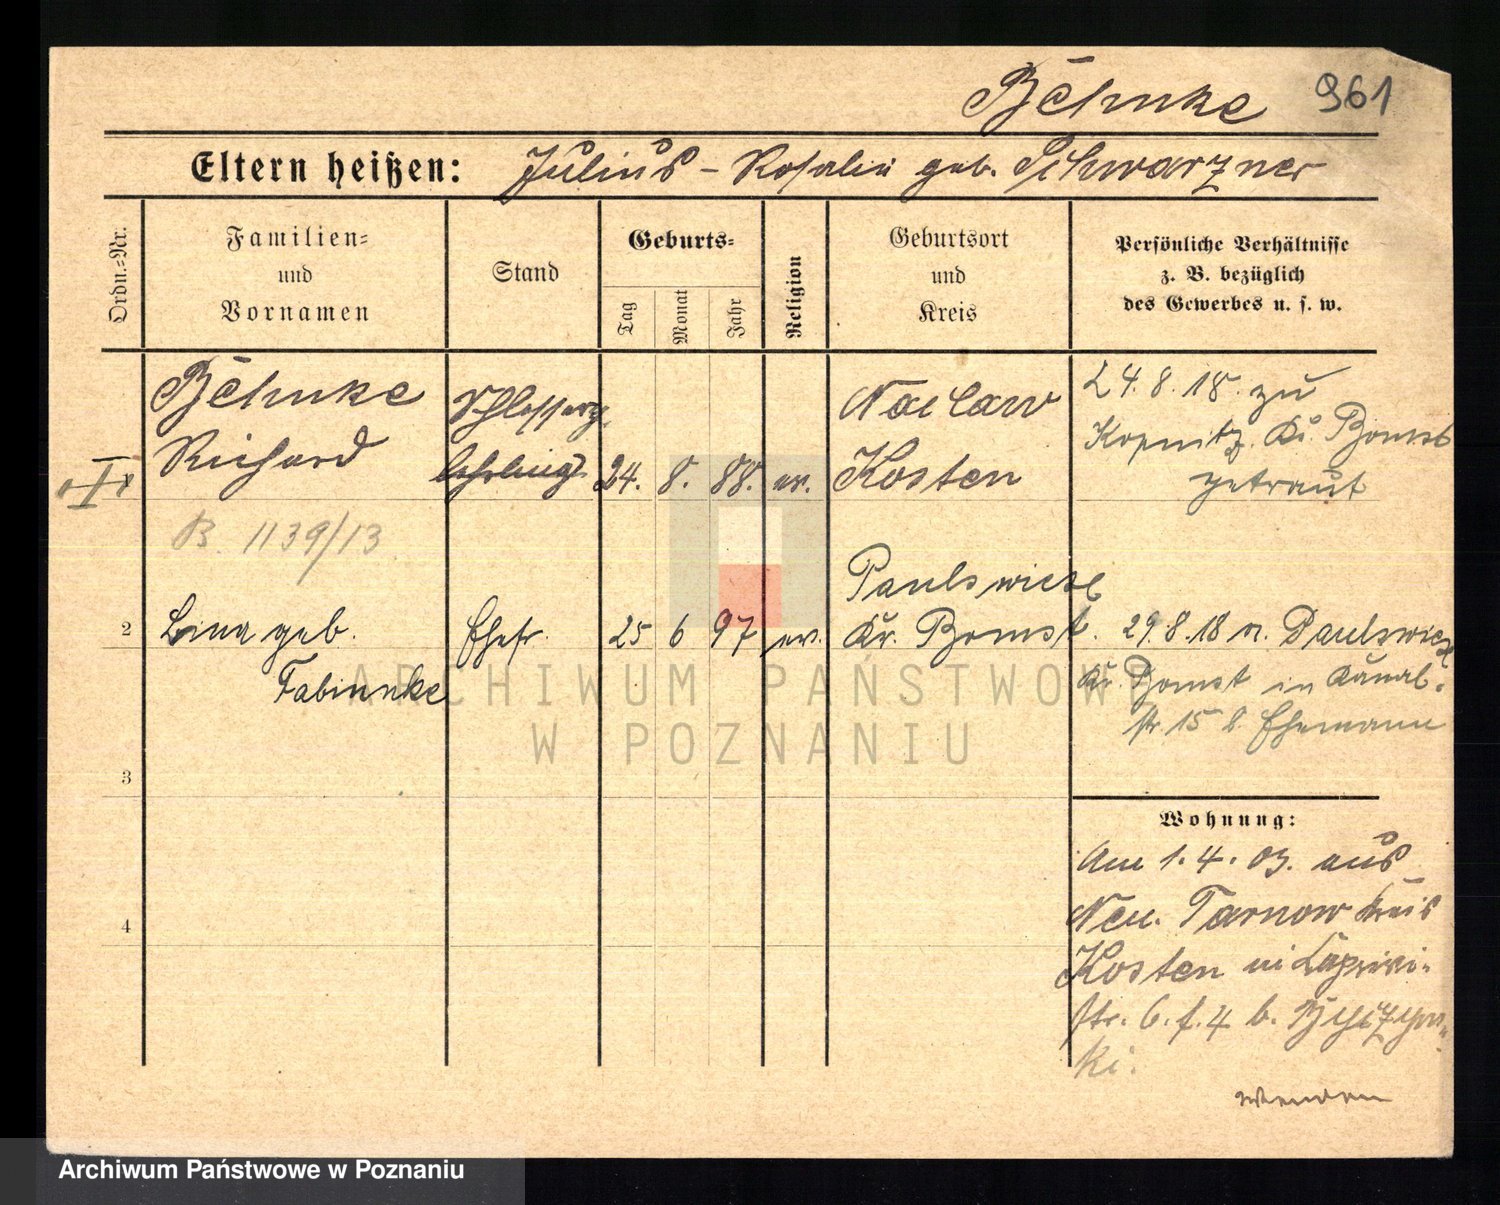 Böhnke 961
Eltern heißen: Julius - Rosalie geb. Schwarzner
Ordn.-Nr.
Familien-
und
Vornamen
Stand
Geburts-
Tag
Monat
Jahr
Religion
Geburtsort
und
Kreis
Persönliche Verhältnisse
z. B. bezüglich
des Gewerbes u. s. w.
Böhnke
Richard
lehrling
24. 8. 88. ev.
Naclaw
Kosten
24. 8. 18. zu
Kopnitz Kr. Bomst
getraut
B. 1139/13
2
Lina geb.
Fabinnke
Ehefr.
25 6 97 ev.
Paulswiese
Kr. Bomst.
29.8.18 v. Paulswiese
Kr. Bomst in Kanal-
str. 15 b. Ehemann
3
4
Wohnung:
Am 1.4.03. aus
Neu. Tarnow Kreis
Kosten in Caprivi-
str. 6. f. 4 b.
ki.
Wenden
ARCHIWUM PAŃSTWOWE
W POZNANIU
Archiwum Państwowe w Poznaniu